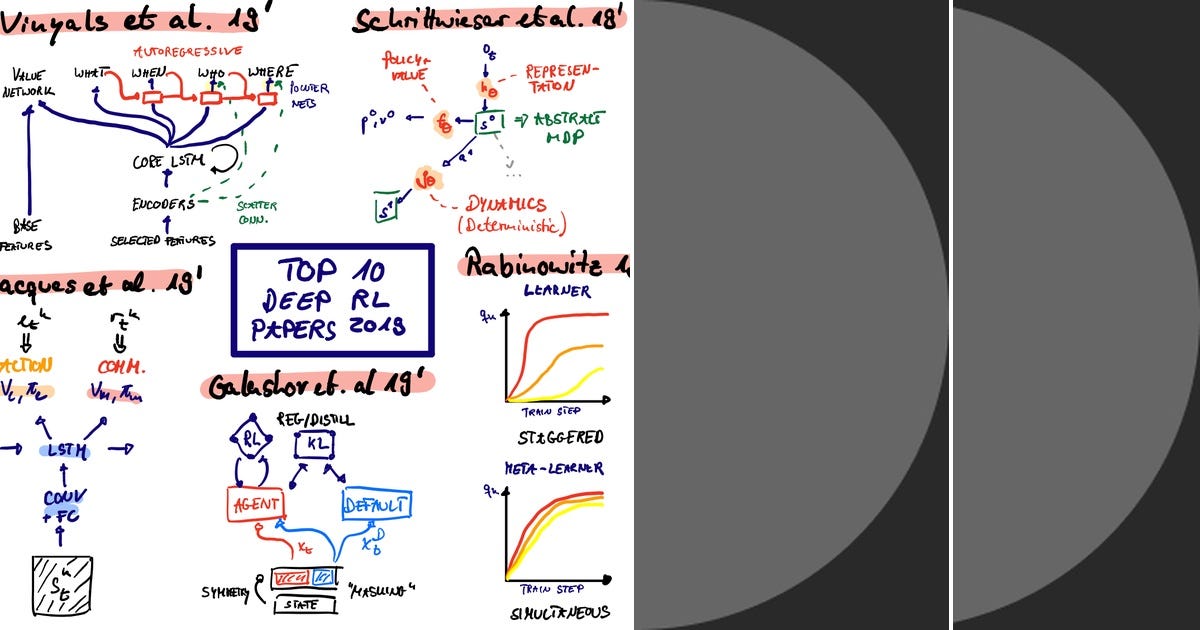 Vinyals et al. 19'
AUTOREGRESSIVE
VALUE NETWORK
WHAT WHEN WHO WHERE
POINTER NETS
CORE LSTM
ENCODERS
SCATTER CONN.
BASE FEATURES
SELECTED FEATURES
Schrittwieser et al. 19'
POLICY+ VALUE
REPRESEN-
TATION
⇒ ABSTRACT
MDP
DYNAMICS
(Deterministic)
TOP 10
DEEP RL
PAPERS 2019
acques et al. 19'
ACTION
COMM.
LSTM
CONV
+ FC
Galashov et. al 19'
REG/DISTILL
RL
KL
AGENT
DEFAULT
SYMMETRY
"MASKING"
STATE
Rabinowitz 1
LEARNER
TRAIN STEP
STAGGERED
META-LEARNER
TRAIN STEP
SIMULTANEOUS